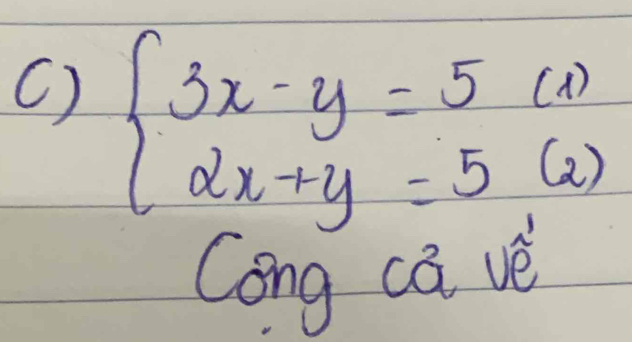 c) { 3x - y = 5 (1)
2x + y = 5 (2)
Cộng cả vế